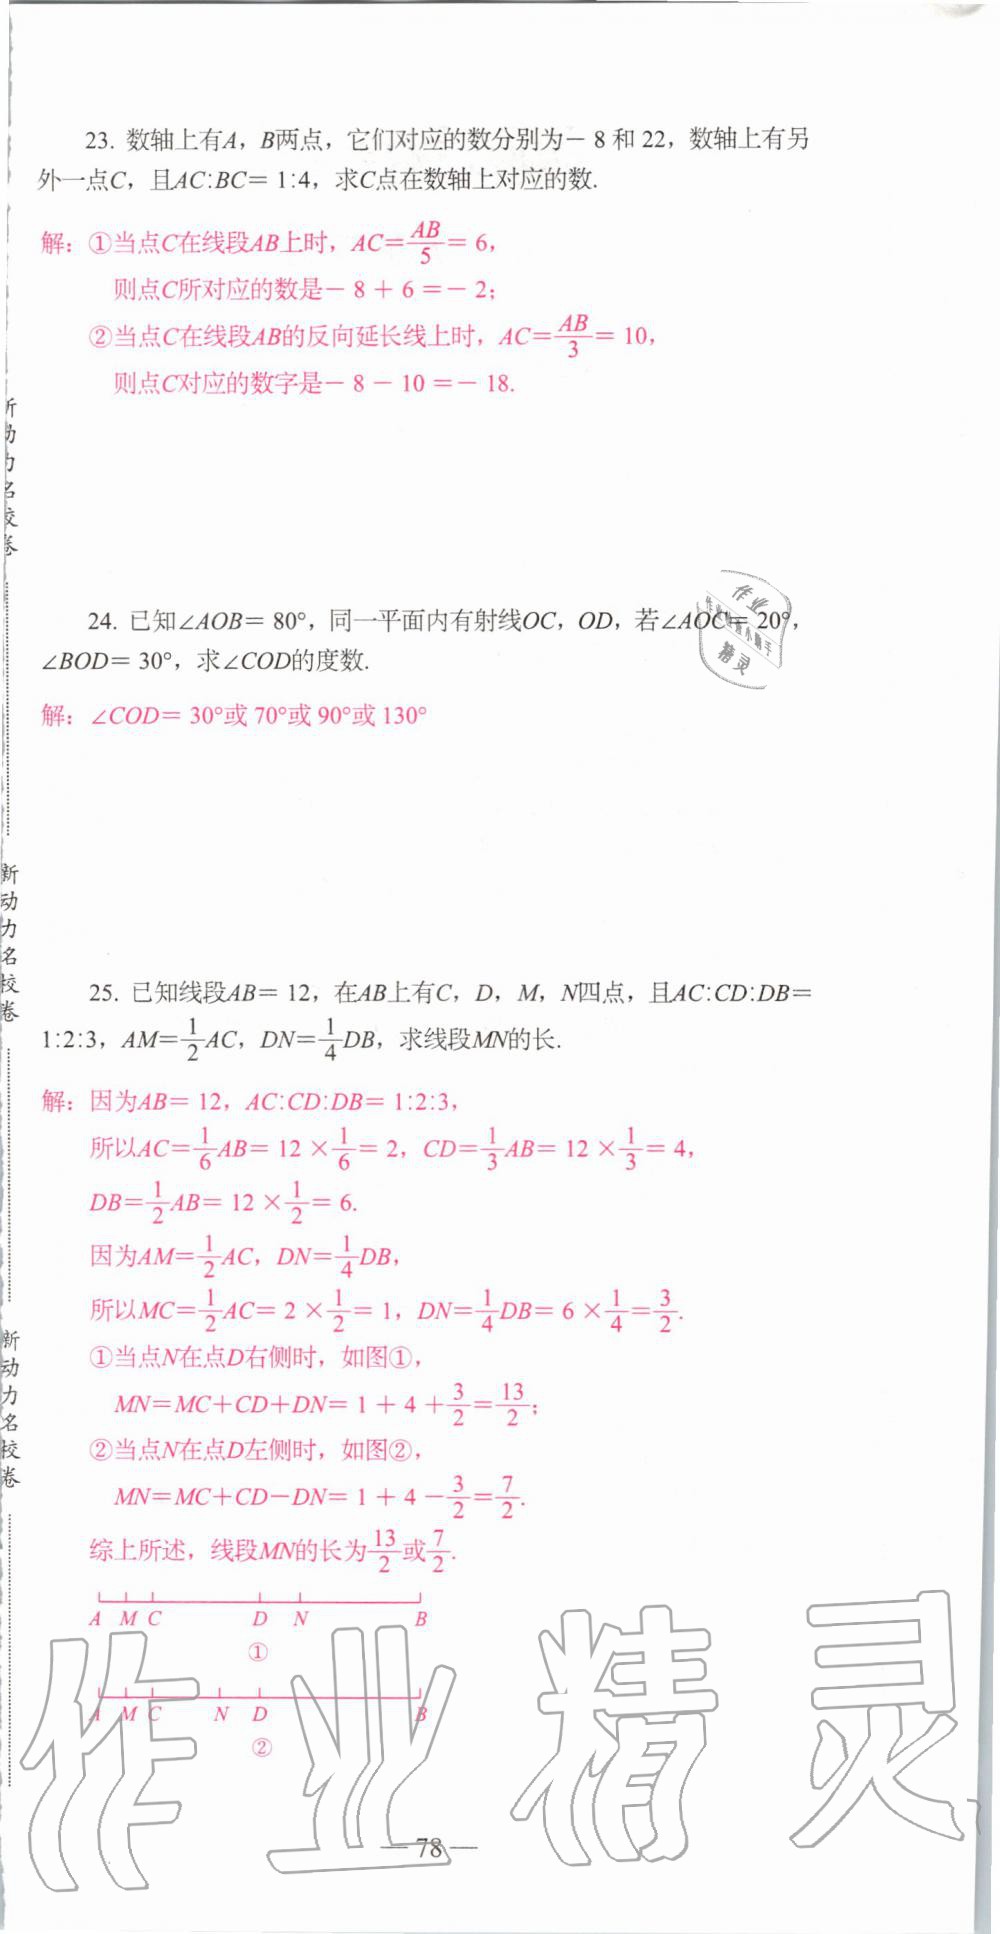 23. 数轴上有A，B两点，它们对应的数分别为－8和22，数轴上有另
外一点C，且AC:BC＝1:4，求C点在数轴上对应的数.
解：①当点C在线段AB上时，AC＝AB/5＝6，
则点C所对应的数是－8＋6＝－2；
②当点C在线段AB的反向延长线上时，AC＝AB/3＝10，
则点C对应的数字是－8－10＝－18.
24. 已知∠AOB＝80°，同一平面内有射线OC，OD，若∠AOC＝20°，
∠BOD＝30°，求∠COD的度数.
解：∠COD＝30°或70°或90°或130°
25. 已知线段AB＝12，在AB上有C，D，M，N四点，且AC:CD:DB＝
1:2:3，AM＝1/2AC，DN＝1/4DB，求线段MN的长.
解：因为AB＝12，AC:CD:DB＝1:2:3，
所以AC＝1/6AB＝12×1/6＝2，CD＝1/3AB＝12×1/3＝4，
DB＝1/2AB＝12×1/2＝6.
因为AM＝1/2AC，DN＝1/4DB，
所以MC＝1/2AC＝2×1/2＝1，DN＝1/4DB＝6×1/4＝3/2.
①当点N在点D右侧时，如图①，
MN＝MC＋CD＋DN＝1＋4＋3/2＝13/2；
②当点N在点D左侧时，如图②，
MN＝MC＋CD－DN＝1＋4－3/2＝7/2.
综上所述，线段MN的长为13/2或7/2.
A M C D N B
①
A M C N D B
②
— 78 —
新动力名校卷
新动力名校卷
新动力名校卷
作业
精灵
作业精灵